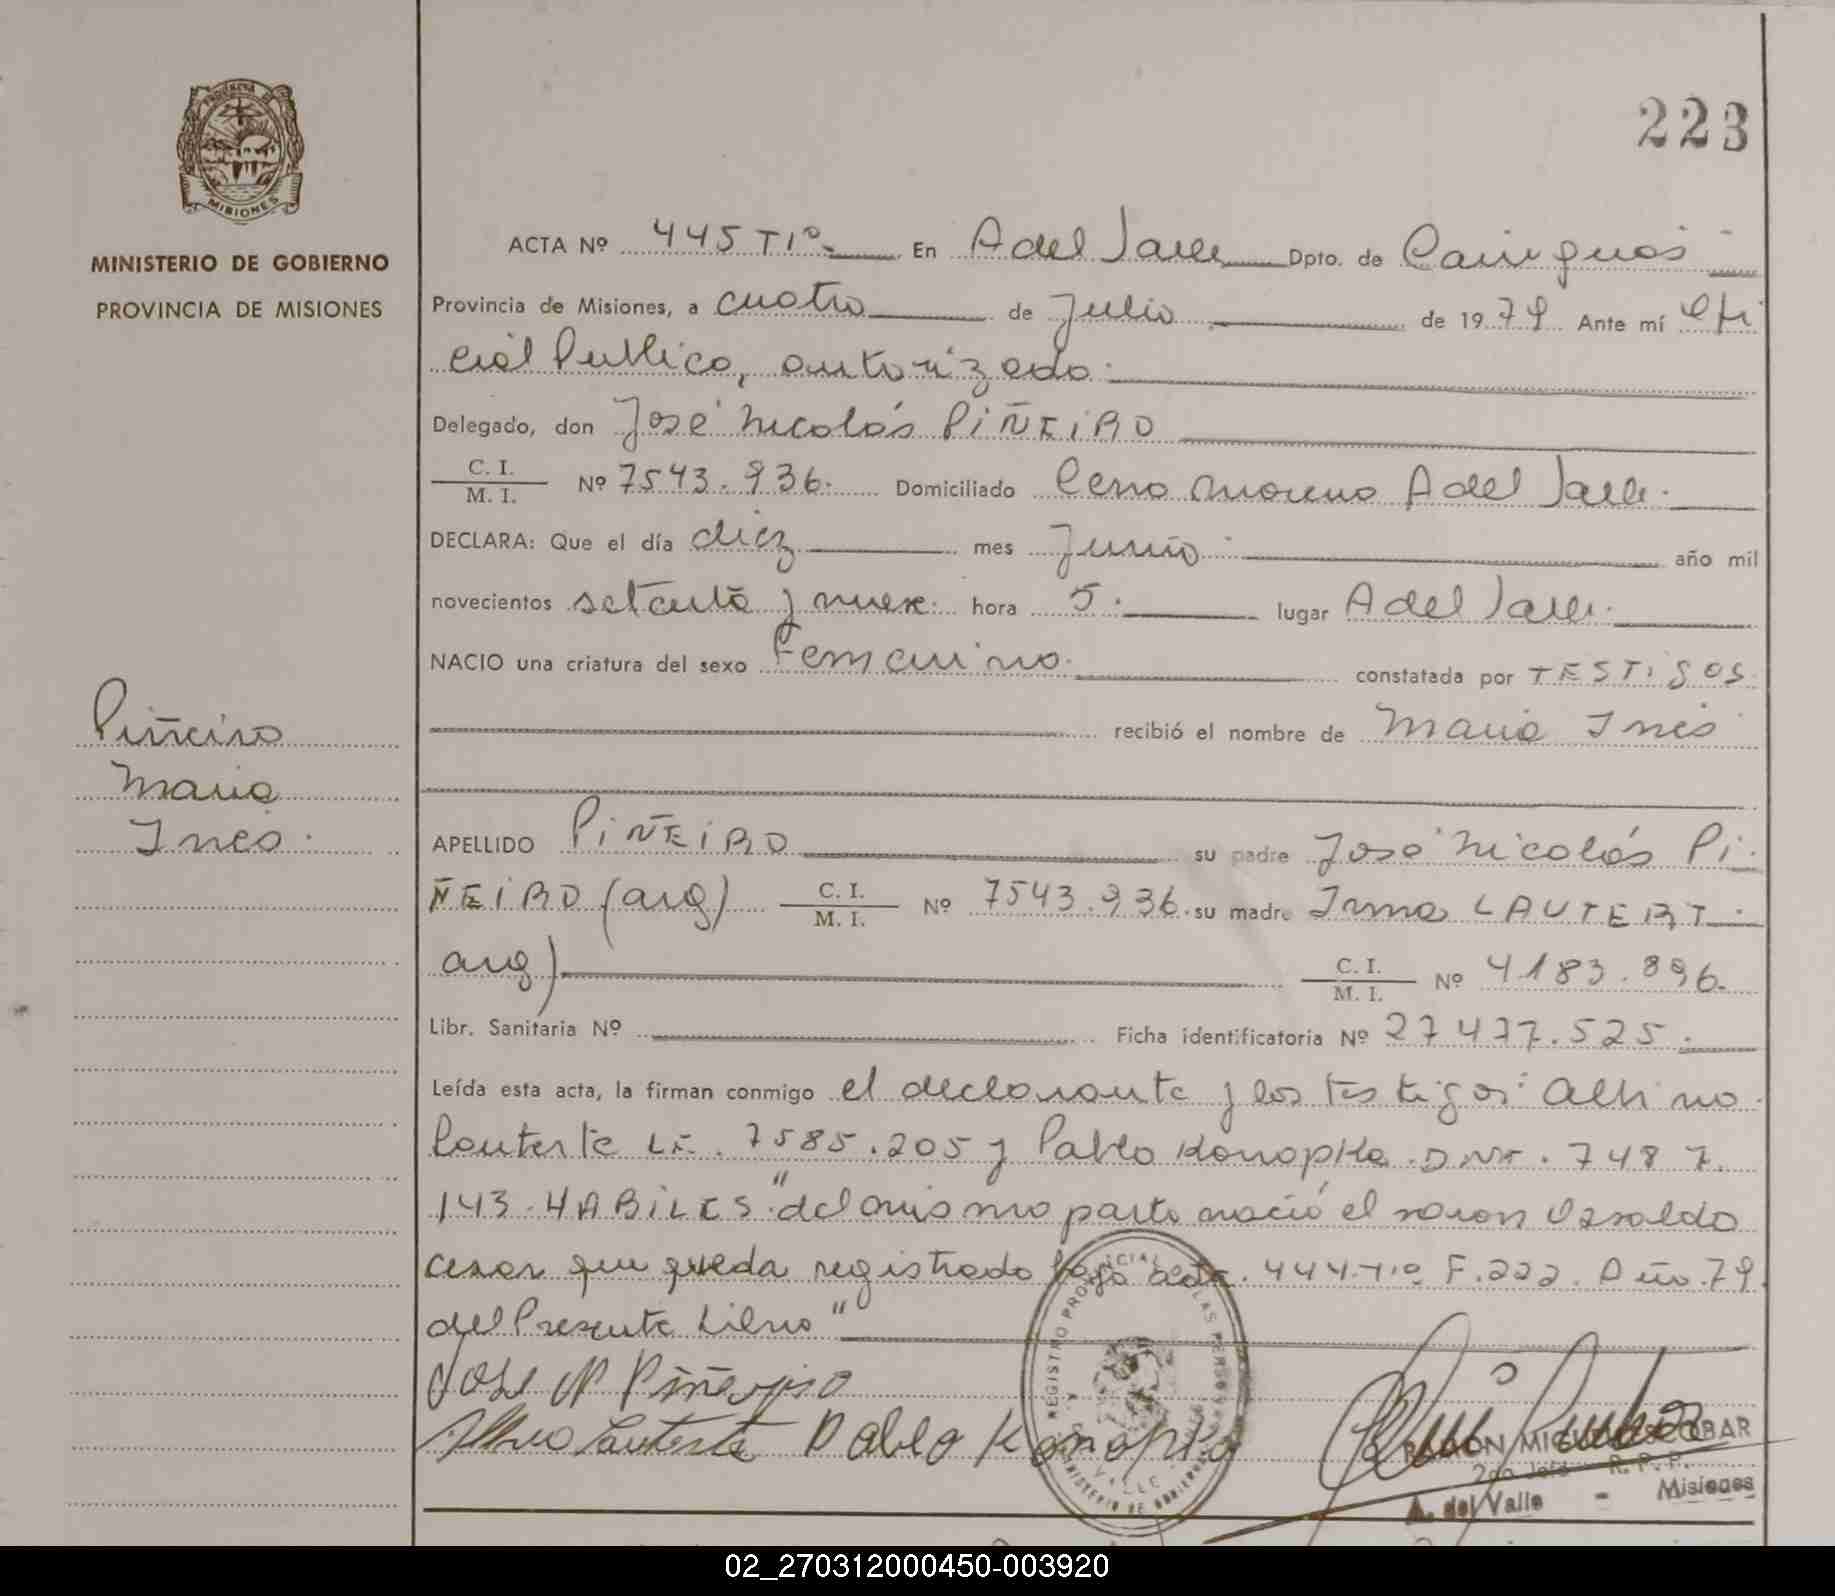 223
MISIONES
MINISTERIO DE GOBIERNO
PROVINCIA DE MISIONES
Piñeiro
Maria
Inés.
ACTA Nº 445 Tº1º.- En A del Valle Dpto. de Cainguás
Provincia de Misiones, a cuatro de Julio de 1979 Ante mí Ofi
cial Publico, autorizado.
Delegado, don José Nicolás PIÑEIRO
C. I.
M. I. Nº 7543.936. Domiciliado Cerro Moreno A del Valle.
DECLARA: Que el día diez mes Junio año mil
novecientos setenta y nueve. hora 5. lugar A del Valle.
NACIO una criatura del sexo Femenino. constatada por TESTIGOS
recibió el nombre de Maria Inés
APELLIDO PIÑEIRO su padre José Nicolás Pi
ÑEIRO (arg) C. I.
M. I. Nº 7543.936. su madre Irma LAUTERT
arg) C. I.
M. I. Nº 4183.896.
Libr. Sanitaria Nº Ficha identificatoria Nº 27477.525.
Leída esta acta, la firman conmigo el declarante y los testigos: Albino
Lauterte LE. 7585.205 y Pablo Konopka. DNI. 7487.
143. HABILES. "del mismo parto nació el varon Osvaldo
cesar que queda registrado bajo acta. 444.T1º. F.222. Año.79.
del Presente Libro"
José N Piñeyro
Albino Lauterte Pablo Konopka
REGISTRO PROVINCIAL DE LAS PERSONAS
MINISTERIO DE GOBIERNO
RAMON MIGUEL ESCOBAR
2do Jefe R. P. P.
A. del Valle - Misiones
02_270312000450-003920